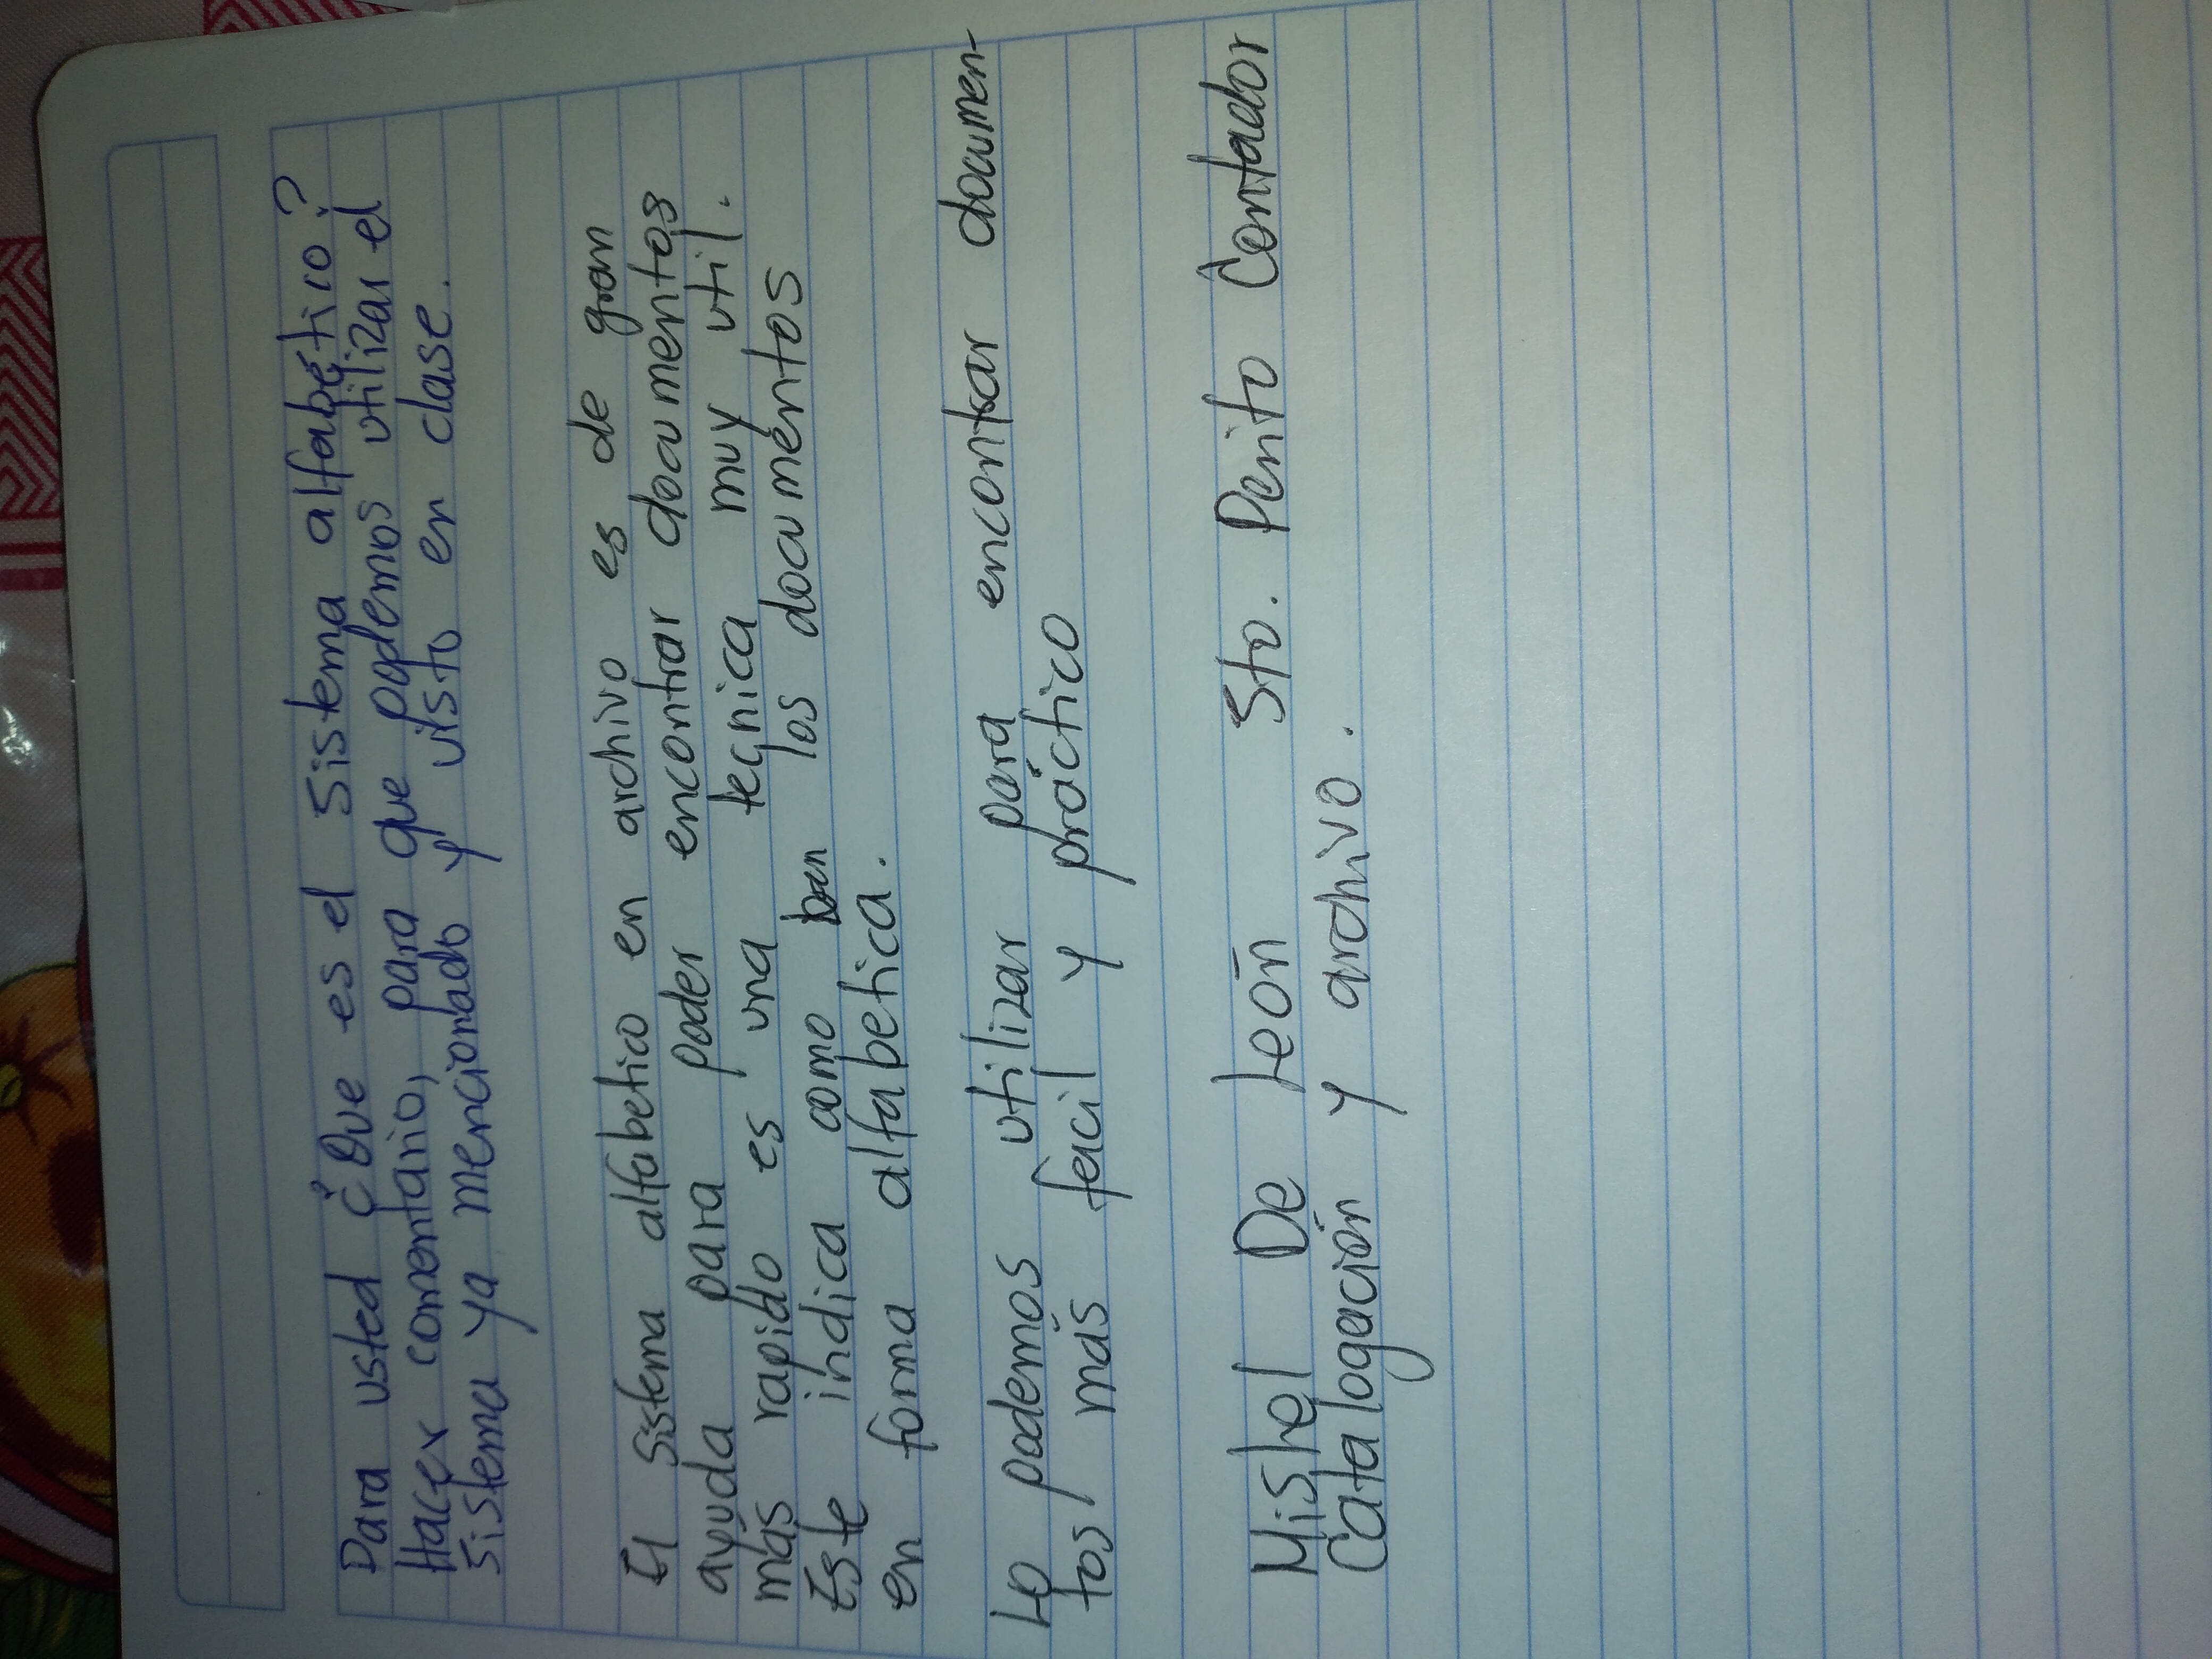 Para usted ¿Que es el sistema alfabético?
Hacer comentario, para que podemos utilizar el
sistema ya mencionado y visto en clase.
El sistema alfabetico en archivo es de gran
ayuda para poder encontrar documentos
más rapido es una tecnica muy util.
Este indica como van los documentos
en forma alfabetica.
Lo podemos utilizar para encontrar documen-
tos más facil y práctico
Mishel De León 5to. Perito Contador
Catalogación y archivo.